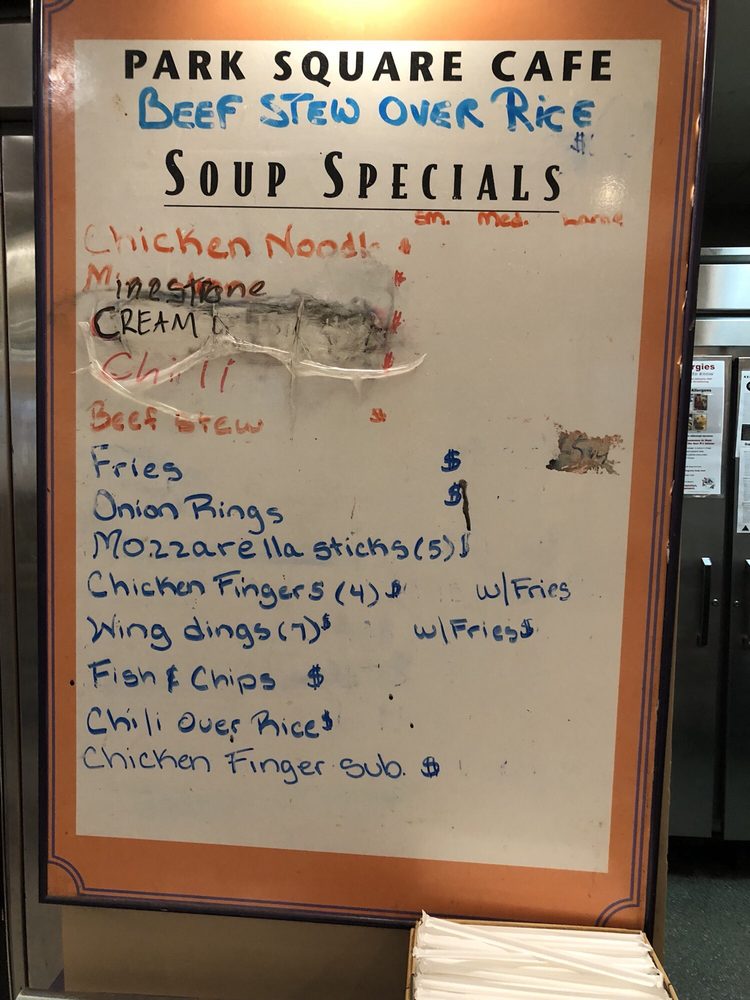 PARK SQUARE CAFE
BEEF STEW OVER RICE
$
SOUP SPECIALS
Sm. Med. Large
Chicken Noodle $
Minestrone $
CREAM $
Chili $
Beef Stew $
Fries $
Onion Rings $
Mozzarella sticks (5) $
Chicken Fingers (4) $ w/Fries
Wing dings (7) $ w/Fries $
Fish & Chips $
Chili Over Rice $
Chicken Finger sub. $